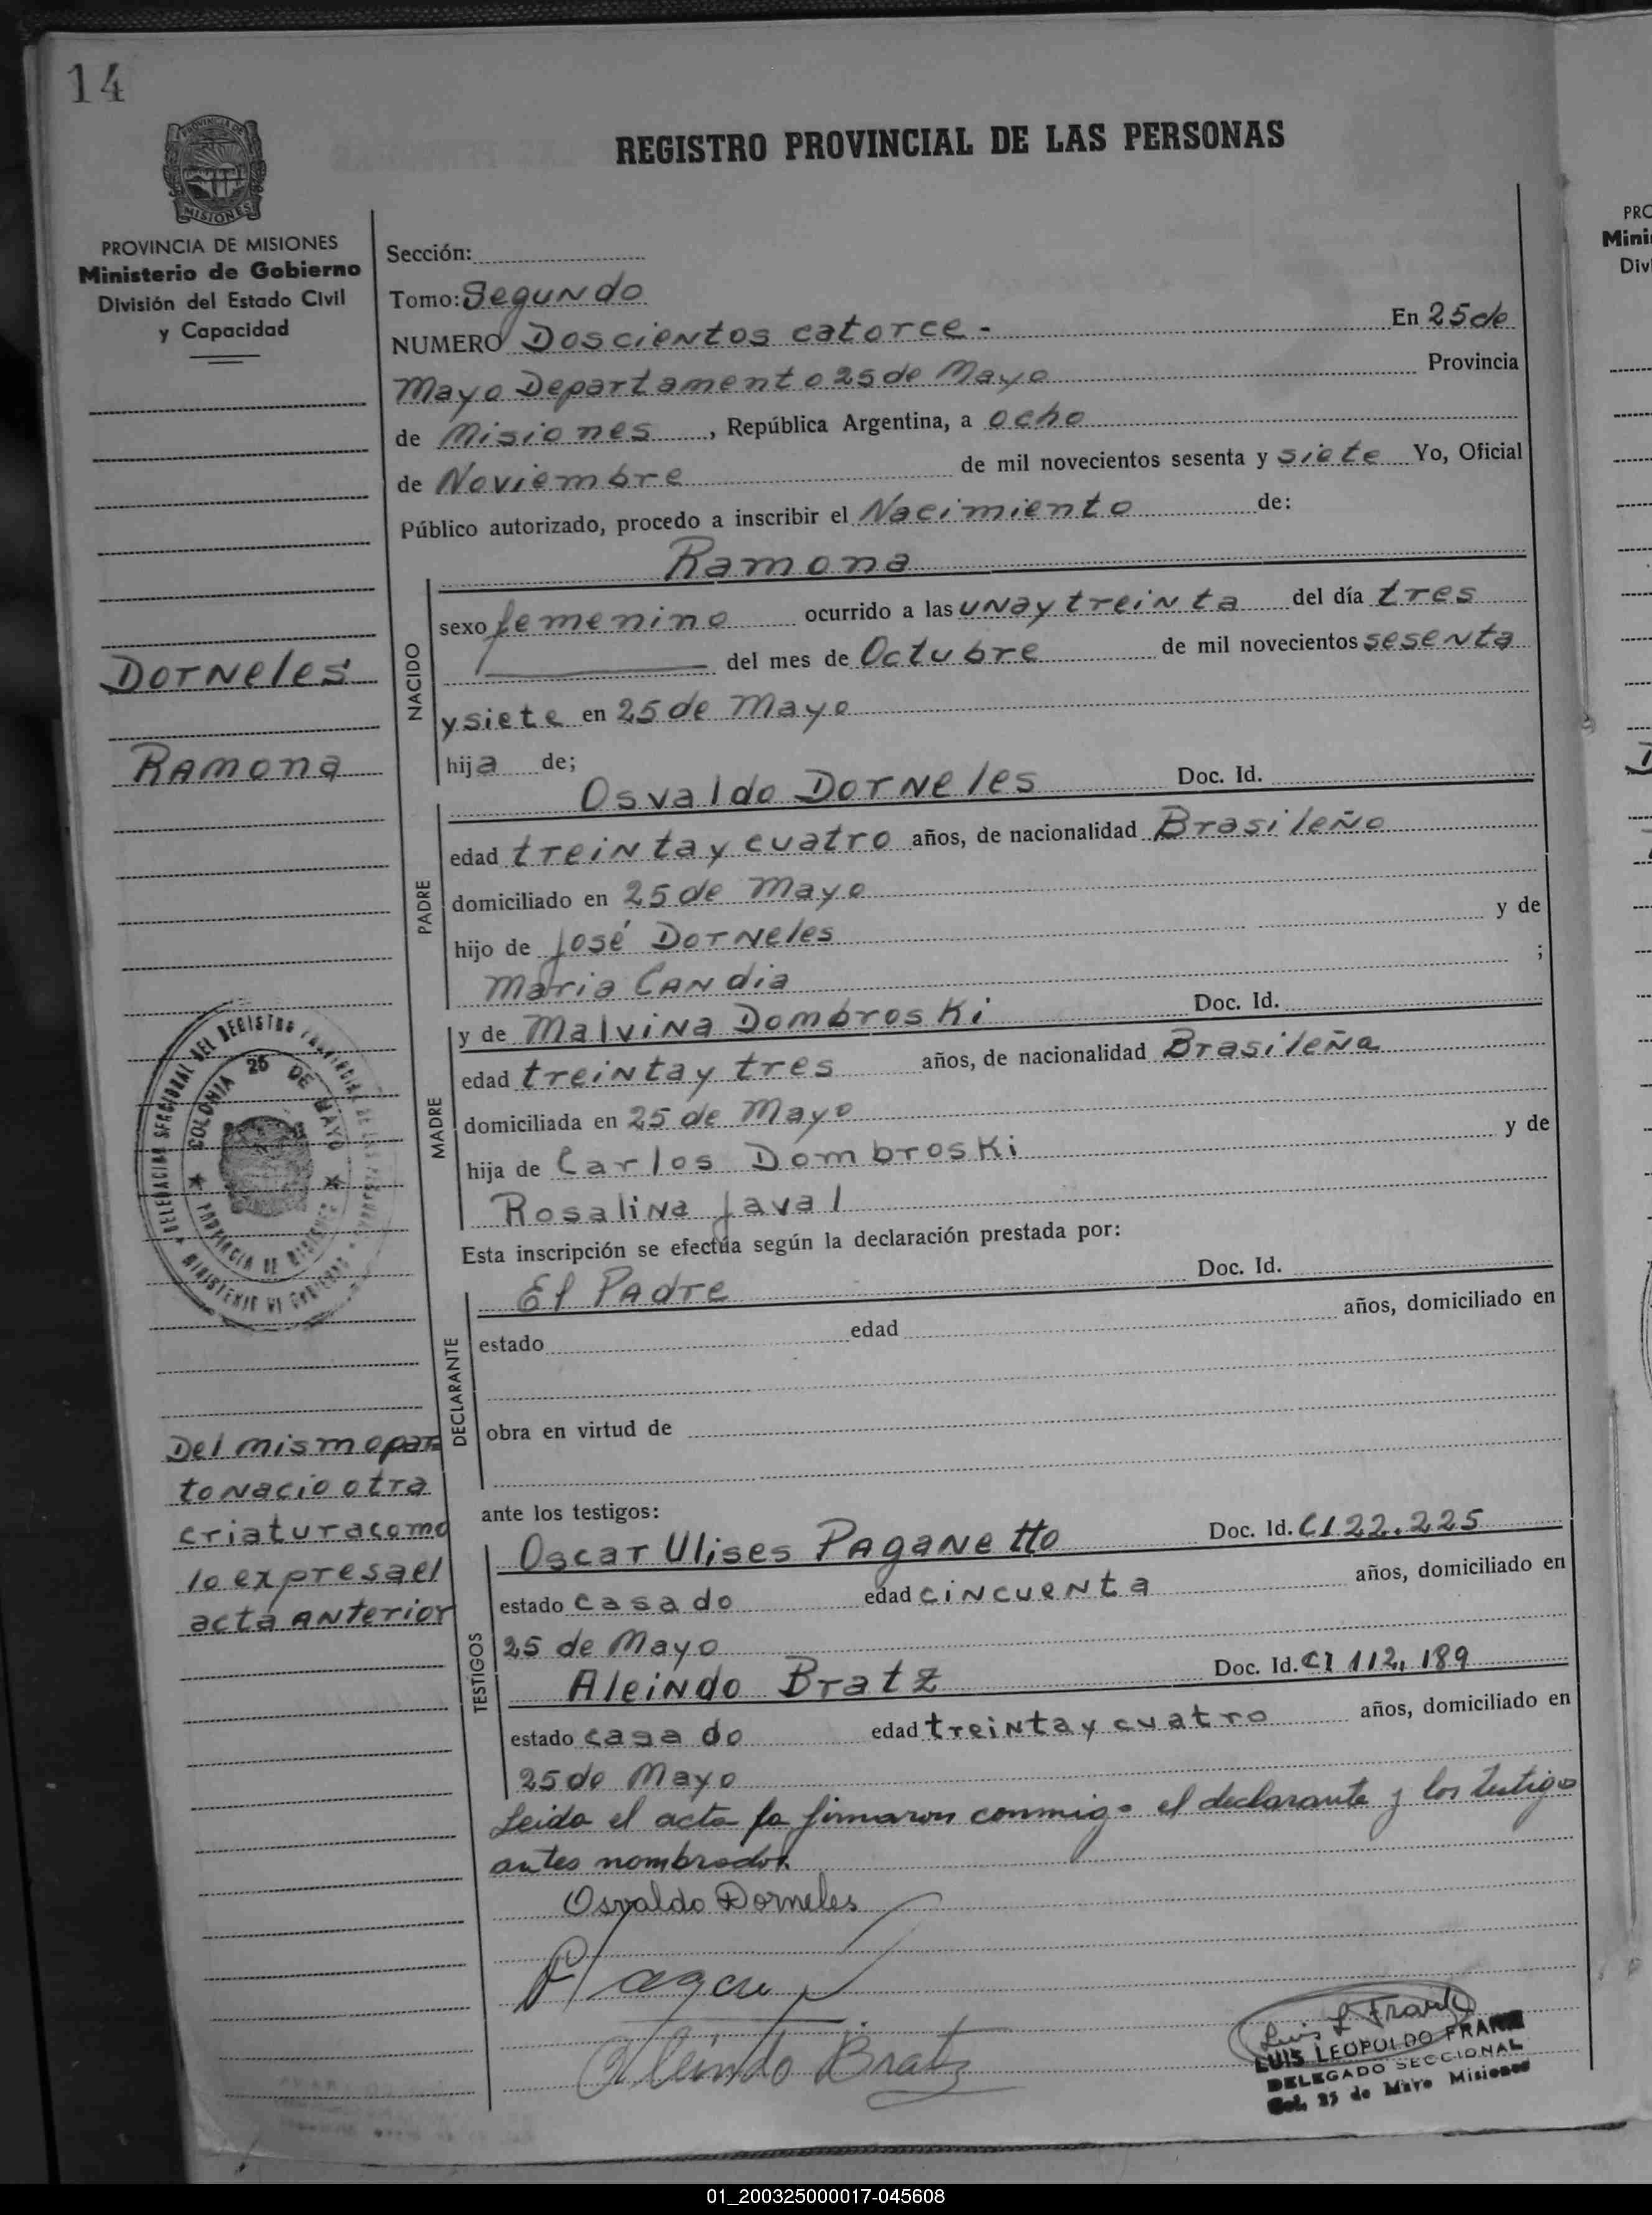 14
REGISTRO PROVINCIAL DE LAS PERSONAS
PROVINCIA DE MISIONES
MISIONES
PROVINCIA DE MISIONES
Ministerio de Gobierno
División del Estado Civil
y Capacidad
Sección:
Tomo: Segundo
NUMERO Doscientos catorce.- En 25 de
Mayo Departamento 25 de Mayo Provincia
de Misiones, República Argentina, a ocho
de Noviembre de mil novecientos sesenta y siete Yo, Oficial
Público autorizado, procedo a inscribir el Nacimiento de:
Ramona
NACIDO
sexo femenino ocurrido a las una y treinta del día tres
del mes de Octubre de mil novecientos sesenta
y siete en 25 de Mayo
hija de;
Dorneles
Ramona
PADRE
Osvaldo Dorneles Doc. Id.
edad treinta y cuatro años, de nacionalidad Brasileño
domiciliado en 25 de Mayo
hijo de José Dorneles y de
Maria Candia ;
MADRE
y de Malvina Dombroski Doc. Id.
edad treinta y tres años, de nacionalidad Brasileña
domiciliada en 25 de Mayo
hija de Carlos Dombroski y de
Rosalina Javal
COLONIA 25 DE MAYO
PROVINCIA DE MISIONES
Esta inscripción se efectúa según la declaración prestada por:
DECLARANTE
El Padre Doc. Id.
estado edad años, domiciliado en
obra en virtud de
Del mismo par
to nacio otra
criatura como
lo expresa el
acta anterior
ante los testigos:
TESTIGOS
Oscar Ulises Paganetto Doc. Id. CI 22.225
estado casado edad cincuenta años, domiciliado en
25 de Mayo
Aleindo Bratz Doc. Id. CI 112,189
estado casado edad treinta y cuatro años, domiciliado en
25 de Mayo
Leida el acta la firmaron conmigo el declarante y los testigo
antes nombrados.
Osvaldo Dorneles
Aleindo Bratz
Luis L Frank
LUIS LEOPOLDO FRANK
DELEGADO SECCIONAL
Col. 25 de Mayo Misiones
PRO
Mini
Div
01_200325000017-045608